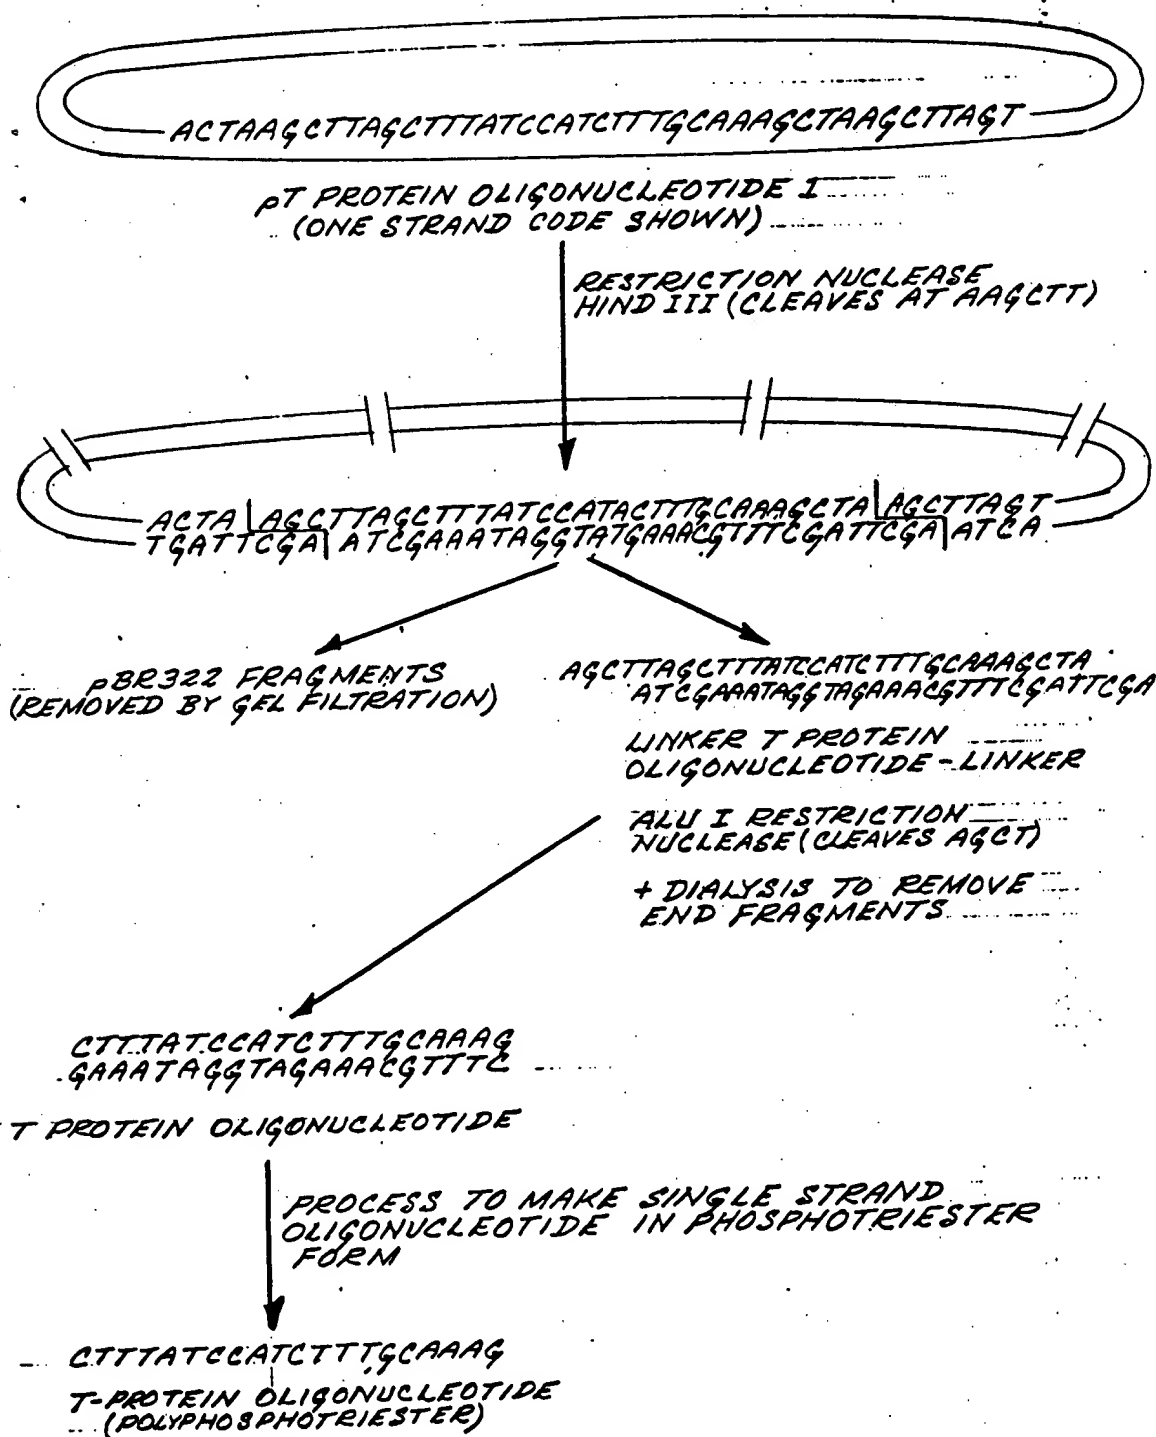 ACTAAGCTTAGCTTTATCCATCTTTGCAAAGCTAAGCTTAGT
pT PROTEIN OLIGONUCLEOTIDE I
(ONE STRAND CODE SHOWN)
RESTRICTION NUCLEASE
HIND III (CLEAVES AT AAGCTT)
ACTA AGCTTAGCTTTATCCATACTTTGCAAAGCTA AGCTTAGT
TGATTCGA ATCGAAATAGGTATGAAACGTTTCGATTCGA ATCA
pBR322 FRAGMENTS
(REMOVED BY GEL FILTRATION)
AGCTTAGCTTTATCCATCTTTGCAAAGCTA
ATCGAAATAGGTAGAAACGTTTCGATTCGA
LINKER T PROTEIN
OLIGONUCLEOTIDE-LINKER
ALU I RESTRICTION
NUCLEASE (CLEAVES AGCT)
+ DIALYSIS TO REMOVE
END FRAGMENTS
CTTTATCCATCTTTGCAAAG
GAAATAGGTAGAAACGTTTC
T PROTEIN OLIGONUCLEOTIDE
PROCESS TO MAKE SINGLE STRAND
OLIGONUCLEOTIDE IN PHOSPHOTRIESTER
FORM
CTTTATCCATCTTTGCAAAG
T-PROTEIN OLIGONUCLEOTIDE
(POLYPHOSPHOTRIESTER)